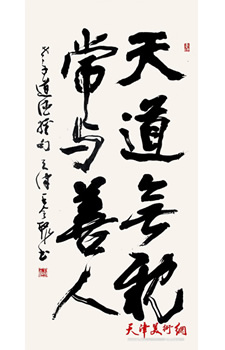 天道無親
常与善人
老子道德經句 天津
書
天津美术网